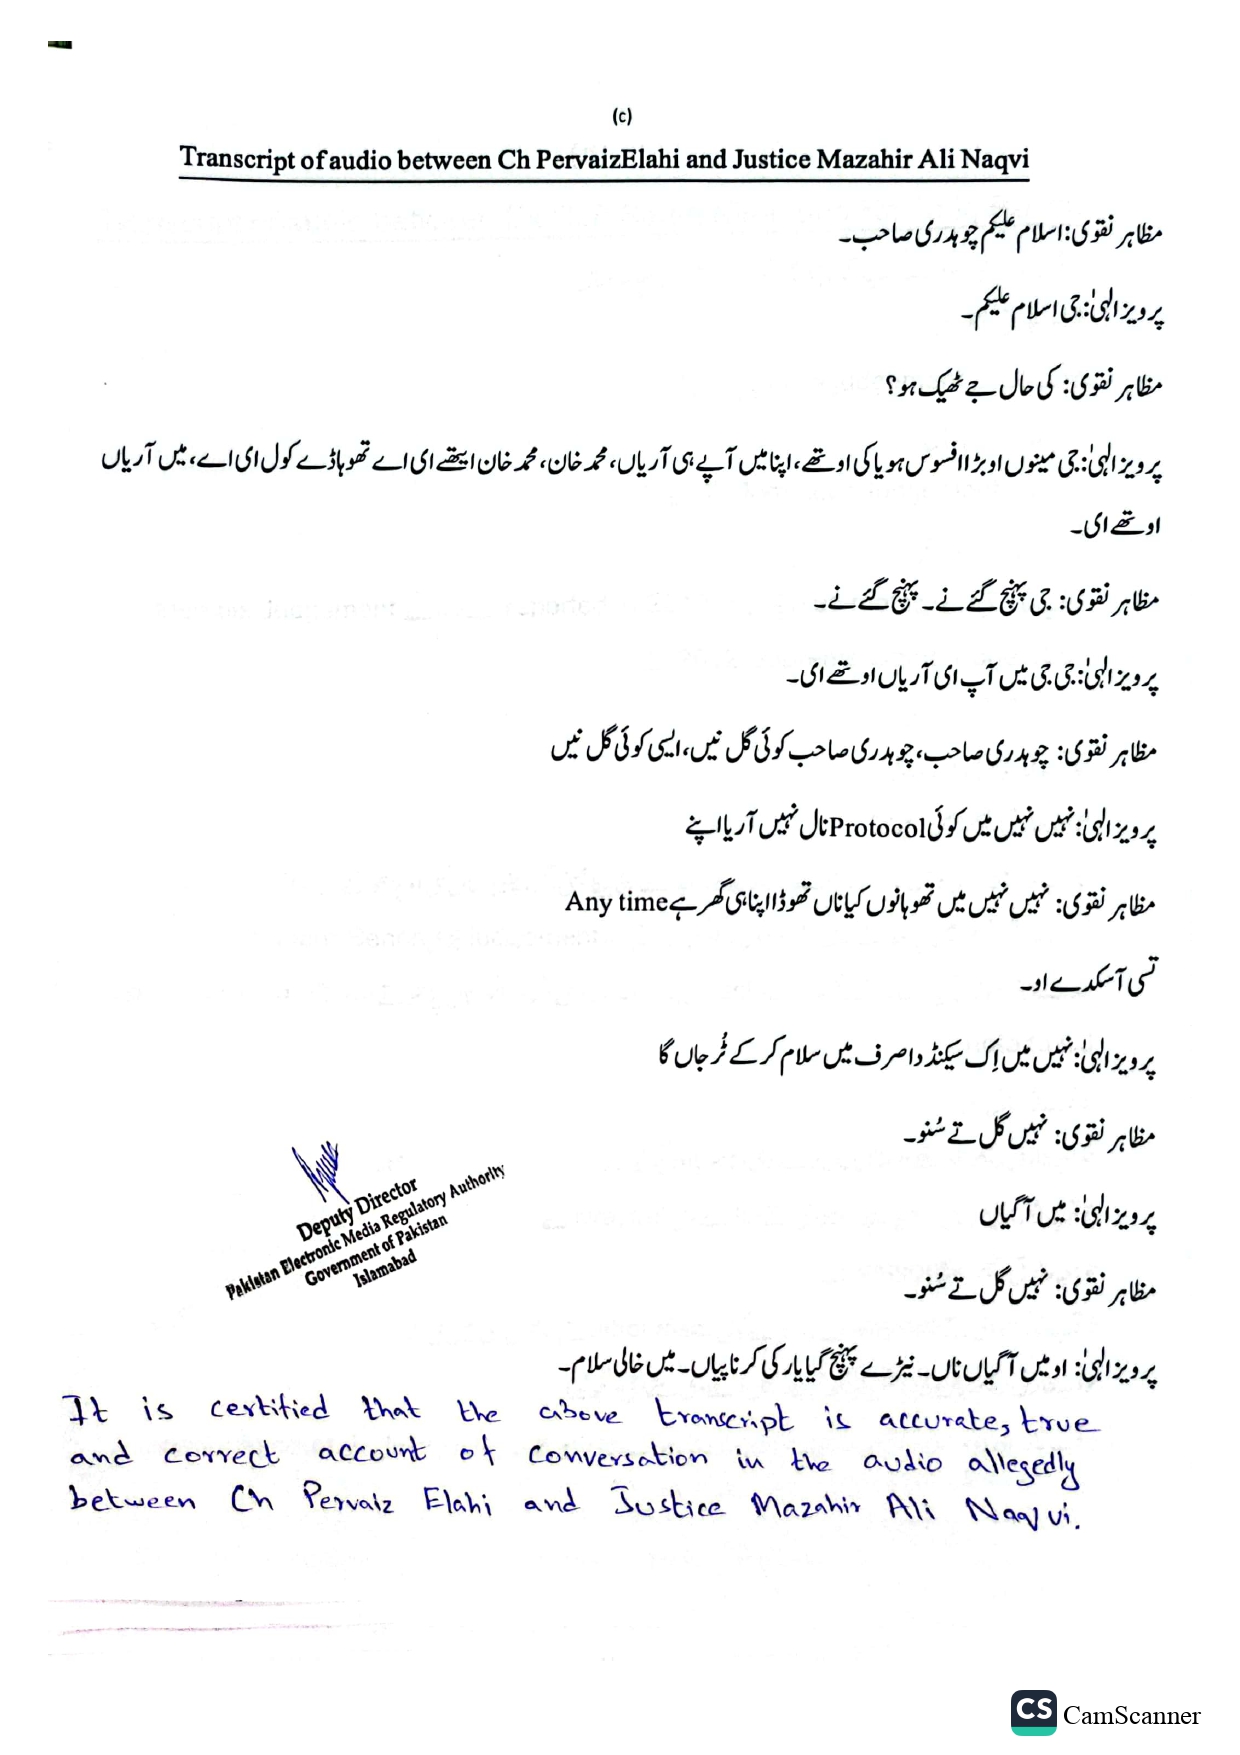 (c)
Transcript of audio between Ch PervaizElahi and Justice Mazahir Ali Naqvi
مظاہر نقوی: اسلام علیکم چوہدری صاحب۔
پرویز الہیٰ: جی اسلام علیکم۔
مظاہر نقوی: کی حال جے ٹھیک ہو؟
پرویز الہیٰ: جی مینوں او بڑا افسوس ہویا کی اوتھے، اپنا میں آپے ہی آریاں، محمد خان، محمد خان ایتھے ای اے تھوہاڈے کول ای اے، میں آریاں
اوتھے ای۔
مظاہر نقوی: جی پہنچ گئے نے۔ پہنچ گئے نے۔
پرویز الہیٰ: جی جی میں آپ ای آریاں اوتھے ای۔
مظاہر نقوی: چوہدری صاحب، چوہدری صاحب کوئی گل نیں، ایسی کوئی گل نیں
پرویز الہیٰ: نہیں نہیں میں کوئی Protocol نال نہیں آریا اپنے
مظاہر نقوی: نہیں نہیں میں تھوہانوں کیا ناں تھوڈا اپنا ہی گھر ہے Any time
تسی آسکدے او۔
پرویز الہیٰ: نہیں میں اِک سیکنڈ دا صرف میں سلام کر کے ٹُر جاں گا
مظاہر نقوی: نہیں گل تے سُنو۔
پرویز الہیٰ: میں آگیاں
مظاہر نقوی: نہیں گل تے سُنو۔
پرویز الہیٰ: او میں آگیاں ناں۔ نیڑے پہنچ گیا یار کی کرنا پیاں۔ میں خالی سلام۔
Deputy Director
Pakistan Electronic Media Regulatory Authority
Government of Pakistan
Islamabad
It is certified that the above transcript is accurate, true
and correct account of conversation in the audio allegedly
between Ch Pervaiz Elahi and Justice Mazahir Ali Naqvi.
CS CamScanner